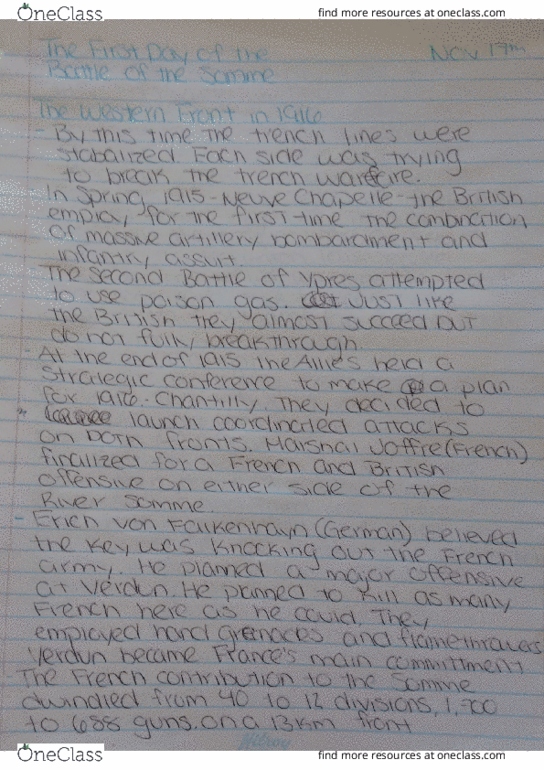 OneClass
find more resources at oneclass.com
The First Day of the
Nov 17th
Battle of the Somme
The Western Front in 1916
- By this time the trench lines were
stabalized. Each side was trying
to break the trench warfare.
- In Spring 1915 - Neuve Chapelle - the British
employ for the first time the combination
of massive artillery bombardment and
infantry assult.
The second Battle of Ypres attempted
to use poison gas. Just like
the British they almost succeed but
do not fully breakthrough
- At the end of 1915 the Allie's held a
strategic conference to make a plan
for 1916. Chantilly. They decided to
* launch coordinated attacks
on both fronts. Marshal Joffre (French)
finalized for a French and British
offensive on either side of the
River Somme
- Erich von Falkenhayn (German) believed
the key was knocking out the French
army. He planned a major offensive
at Verdun. He planned to kill as many
French here as he could. They
employed hand grenades and flamethrowers
Verdun became France's main committment
The French contribution to the Somme
dwindled from 40 to 12 divisions, 1,700
to 688 guns, on a 13km front
OneClass
find more resources at oneclass.com